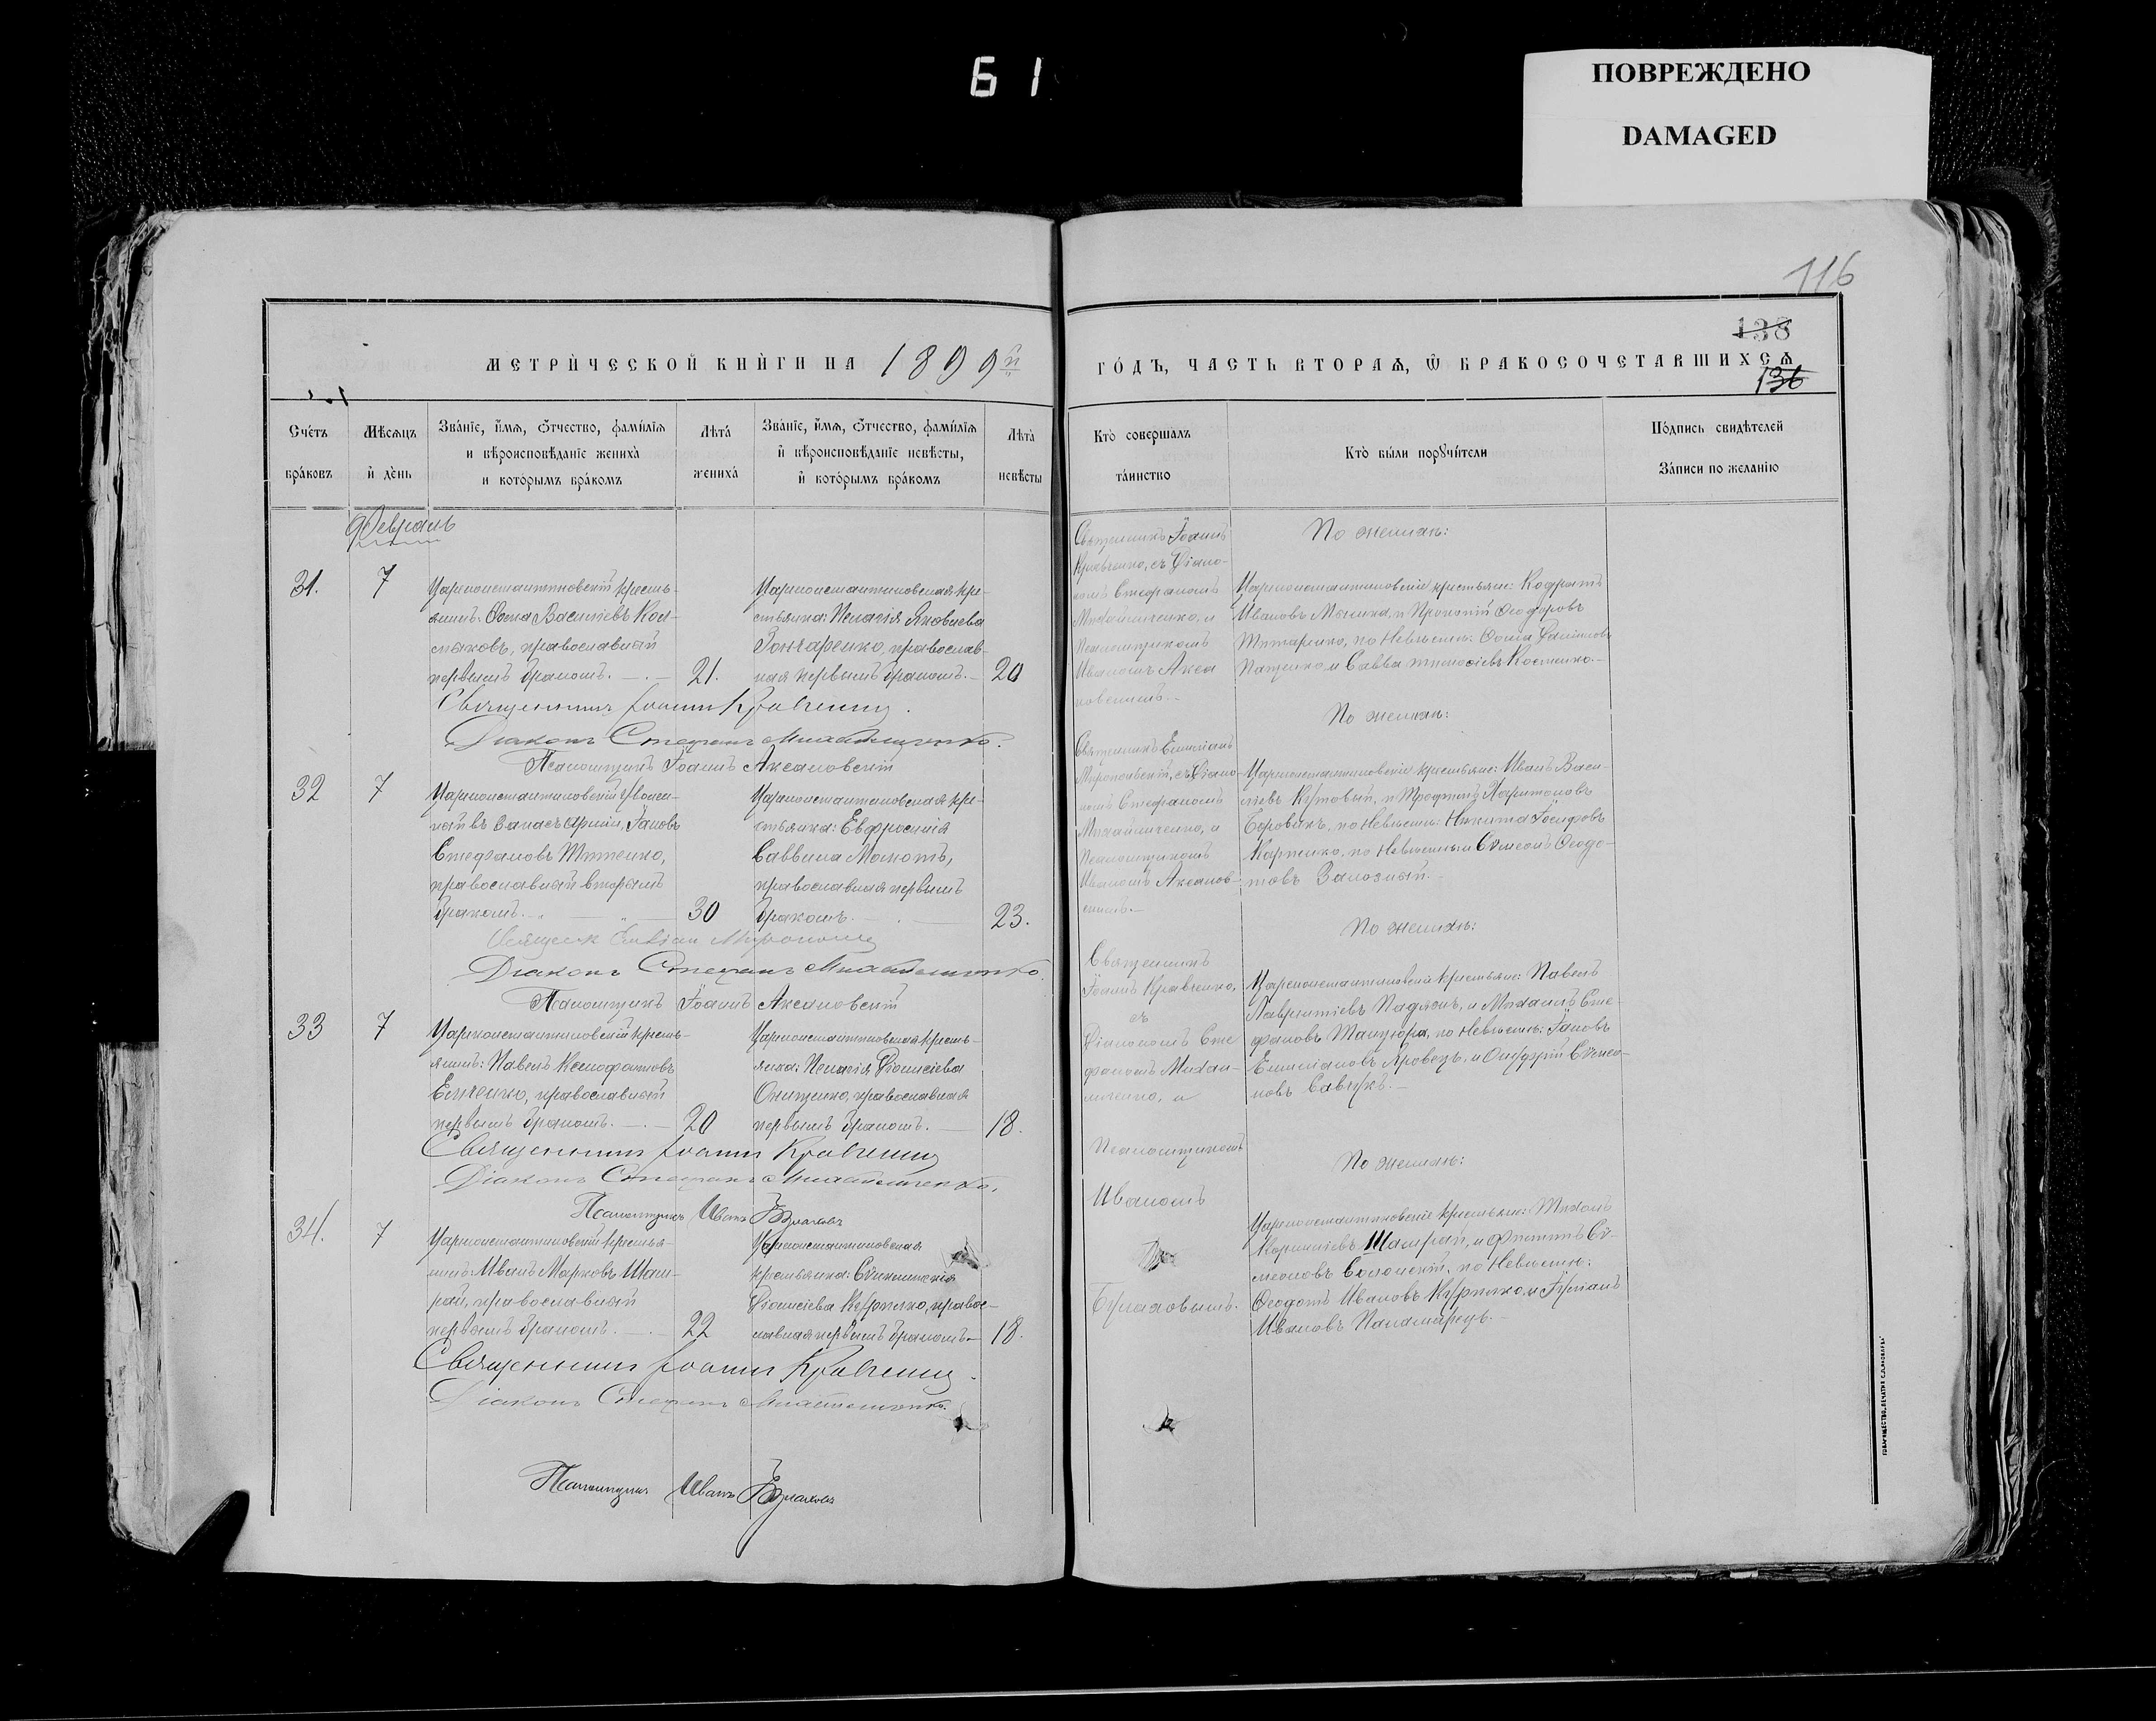 61
ПОВРЕЖДЕНО
DAMAGED
116
138
136
МЕТРИ́ЧЕСКОЙ КНИ́ГИ НА 1899й
ГО́ДЪ, ЧАСТЬ ВТОРАѦ, Ѿ БРАКОСОЧЕТАВШИХСѦ
Сче́тъ бра́ковъ
Мѣсѧцъ и́ де́нь
Зва́нїе, и́мѧ, ѻ҆́тчество, фами́лїѧ и вѣроисповѣ́данїе жениха̀ и кото́рымъ бра́комъ
Лѣта́ жениха́
Зва́нїе, и́мѧ, ѻ҆́тчество, фами́лїѧ и҆ вѣроисповѣ́данїе невѣ́сты, и҆ кото́рымъ бра́комъ
Лѣта̀ невѣ́сты
Кто̀ соверша́лъ та́инство
Кто̀ бы́ли порꙋчи́тели
По́дпись свидѣ́телей За́писи по жела́нїю
Февраль
31.
7
Цареконстантиновскій кресть-
янинъ: Ѳома Васильевъ Кол-
паковъ, православный
первымъ бракомъ.
21.
Цареконстантиновская кре-
стьянка: Пелагія Яковлева
Гончаренко, православ-
ная первымъ бракомъ.
20
Священникъ Іоаннъ
Кравченко, съ Діако-
номъ Стефаномъ
Михайличенко, и
Псаломщикомъ
Иваномъ Акса
новскимъ.
По женихѣ:
Цареконстантиновскіе крестьяне: Кодратъ
Ивановъ и Прокопій Ѳеодоровъ
Титаренко, по Невѣстѣ: Ѳома
и Савва Тимоѳіевъ Костенко.
Священникъ Іоаннъ Кравченко.
Діаконъ Стефанъ Михайличенко.
Псаломщикъ Іоаннъ Аксановскій
32
7
Цареконстантиновскій Уволен-
ный въ запасъ Арміи, Іаковъ
Стефановъ Титенко,
православный вторымъ
бракомъ.
30
Цареконстантиновская кре-
стьянка: Евфросинія
Саввина Мамотъ,
православная первымъ
бракомъ.
23.
Священникъ Емиліанъ
съ Діако-
номъ Стефаномъ
Михайличенко, и
Псаломщикомъ
Иваномъ Аксанов-
скимъ.
По женихѣ:
Цареконстантиновскіе крестьяне: Иванъ Васи-
ліевъ Кутовый, и Трофимъ Харитоновъ
Боровикъ, по Невѣстѣ: Никита Іосифовъ
Карпенко, по Невѣстѣ и Сѵмеонъ Ѳеодо-
товъ Залозный.
Діаконъ Стефанъ Михайличенко
Псаломщикъ Іоаннъ Аксановскій
33
7
Цареконстантиновскій кресть-
янинъ: Павелъ Ксенофонтовъ
православный
первымъ бракомъ.
20
Цареконстантиновская кресть-
янка: Пелагія Діонисіева
Онищенко, православная
первымъ бракомъ.
18.
Священникъ
Іоаннъ Кравченко,
съ
Діакономъ Сте
фаномъ Михай-
личенко, и
Псаломщикомъ
Иваномъ
Бурлаковымъ.
По женихѣ:
Цареконстантиновскіе крестьяне: Павелъ
Лаврентіевъ и Михаилъ Сте-
фановъ по Невѣстѣ: Іаковъ
Емиліановъ Яровецъ, и Онуфрій Сѵмео-
новъ Савчукъ.
Священникъ Іоаннъ Кравченко
Діаконъ Стефанъ Михайличенко.
Псаломщикъ Иванъ Бурлаковъ
34.
7
Цареконстантиновскій крестья-
нинъ: Иванъ Марковъ Шам-
рай, православный
первымъ бракомъ.
22
Цареконстантиновская
крестьянка:
Діонисіева Куприенко, правос-
лавная первымъ бракомъ.
18.
По женихѣ:
Цареконстантиновскіе крестьяне: Тихонъ
Корниліевъ Шамрай, и Филиппъ Сѵ-
меоновъ по Невѣстѣ:
Ѳеодотъ Ивановъ и
Ивановъ
Священникъ Іоаннъ Кравченко.
Діаконъ Стефанъ Михайличенко.
Псаломщикъ Иванъ Бурлаковъ